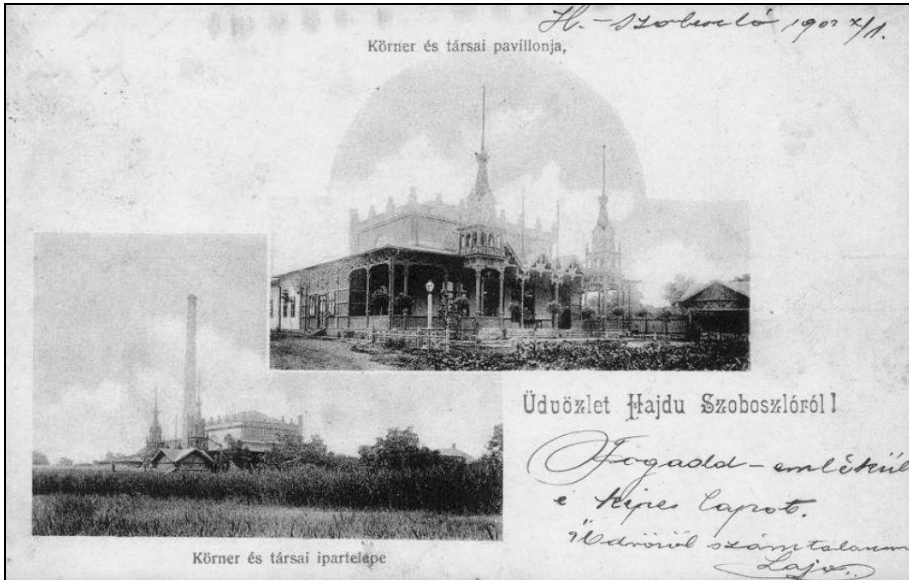 H.-Szoboszló 190 X/1.
Körner és társai pavillonja,
Üdvözlet Hajdu Szoboszlóról!
Fogadd - emlékül
e képes lapot.
számtalanszor
Lajos.
Körner és társai ipartelepe